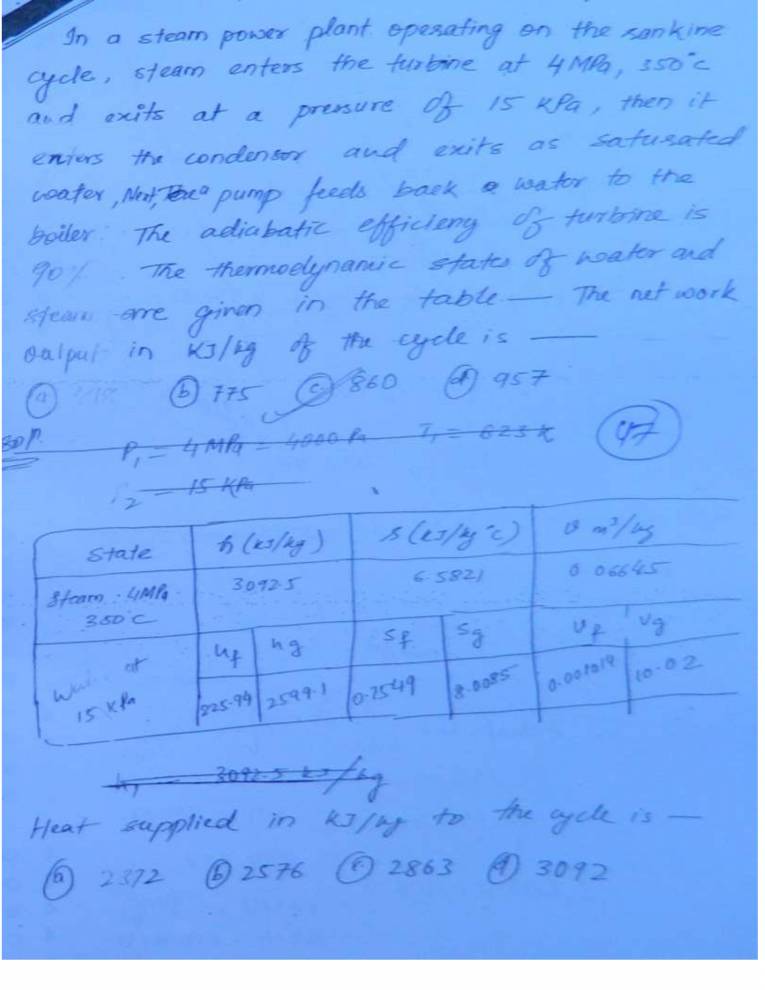 In a steam power plant operating on the rankine
cycle, steam enters the turbine at 4 MPa, 350°C
and exits at a pressure of 15 kPa, then it
enters the condensor and exits as saturated
water, Next, a pump feeds back a water to the
boiler. The adiabatic efficieny of turbine is
90%. The thermodynamic states of water and
steam are given in the table — The net work
output in KJ/kg of the cycle is —
(a) (b) 775 (c) 860 (d) 957
P1 = 4 MPa = 4000 Pa T1 = 623 K 47
2 = 15 KPa
State h (kJ/kg) s (kJ/kg°C) v m³/kg
Steam : 4MPa 350°C 3092.5 6.5821 0.06645
at 15 KPa hf hg sf sg vf vg
225.94 2599.1 0.2549 8.0085 0.001014 10.02
h1 = 3092.5 kJ/kg
Heat supplied in KJ/kg to the cycle is —
(a) 2372 (b) 2576 (c) 2863 (d) 3092